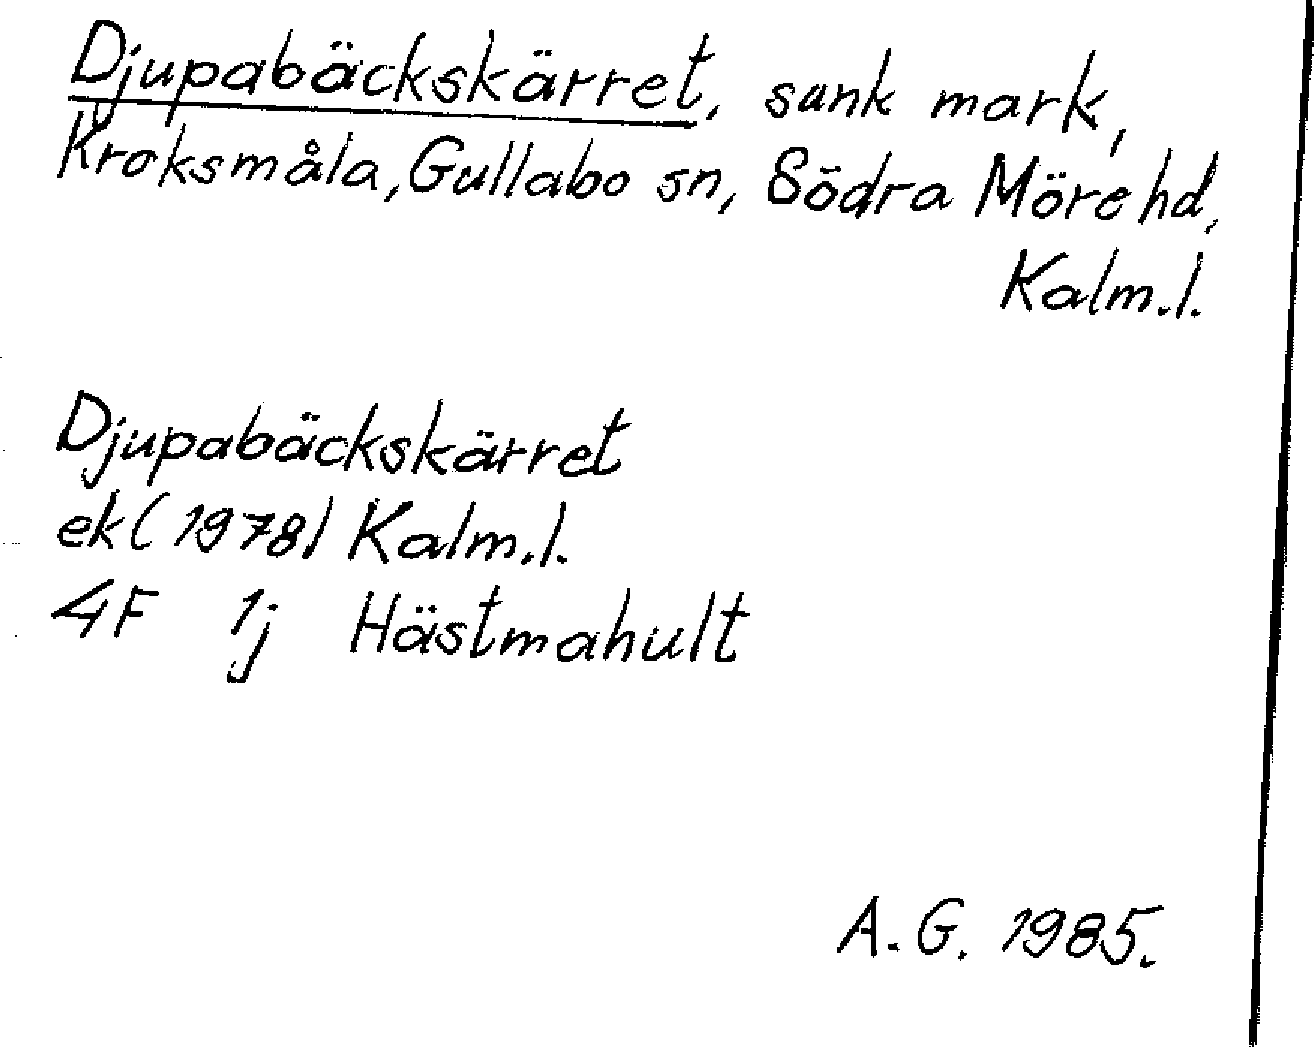 Djupabäckskärret, sank mark,
Kroksmåla, Gullabo sn, Södra Möre hd,
Kalm.l.
Djupabäckskärret
ek (1978) Kalm.l.
4F 1j Hästmahult
A.G. 1985.